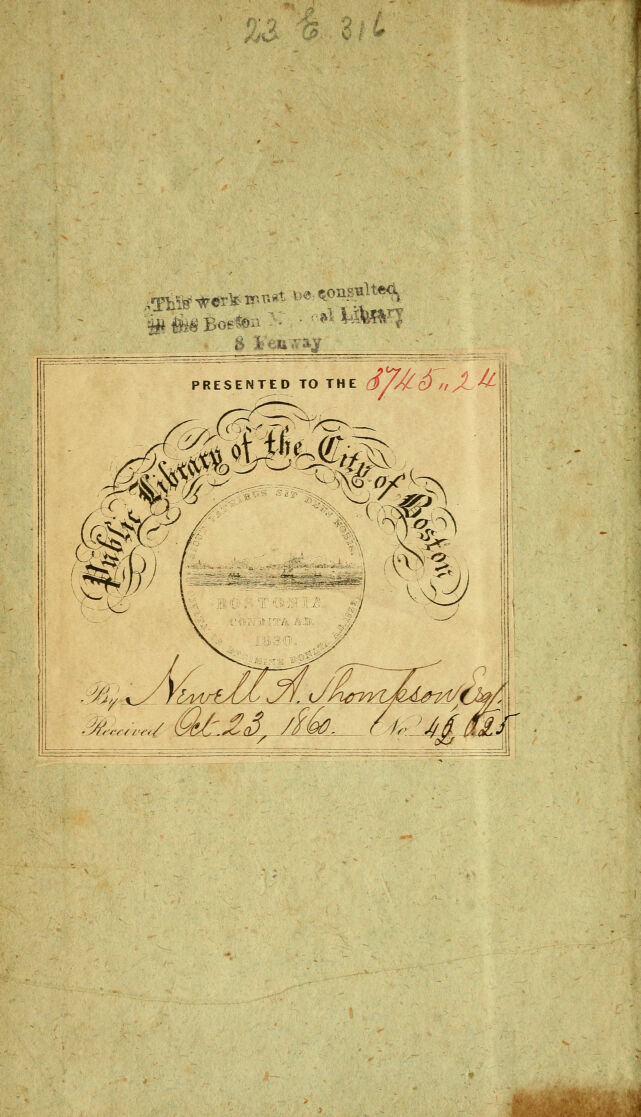 23 E 316
This work must be consulted
in the Boston Library
8 Fenway
PRESENTED TO THE 3745.,24
Public Library of the City of Boston
SICUT PATRIBUS SIT DEUS NOBIS.
BOSTONIA
CONDITA A.D.
1630.
By Newell A. Thompson, Esq.
Received Oct. 23, 1860. No